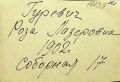 Гуревич
Роза Лазаревна
1902
Соборная 17